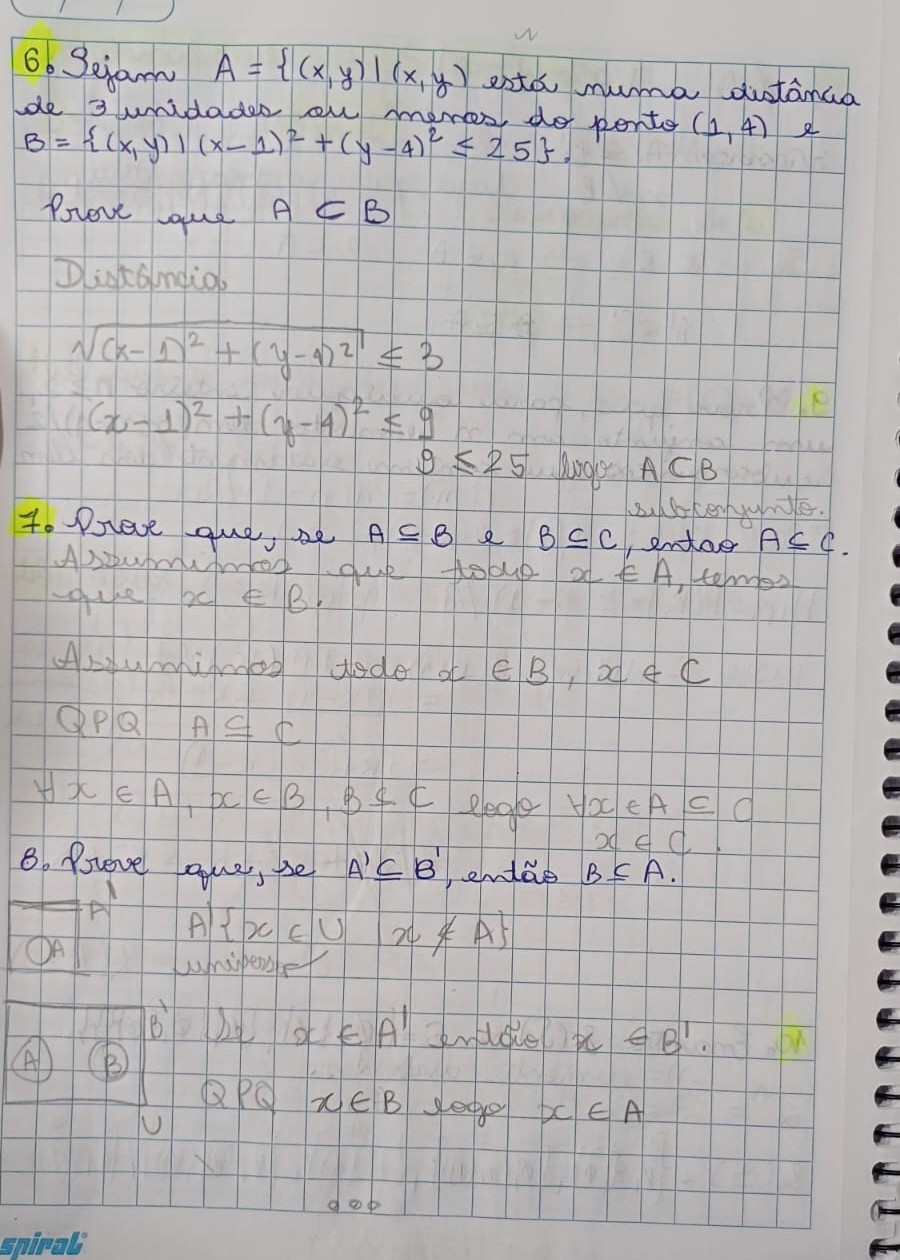 6. Sejam A = {(x,y) | (x,y) está numa distância
de 3 unidades ou menos do ponto (1,4) e
B = {(x,y) | (x-1)² + (y-4)² ≤ 25}.
Prove que A ⊂ B
Distância
√(x-1)² + (y-4)² ≤ 3
(x-1)² + (y-4)² ≤ 9
9 ≤ 25 logo A ⊂ B
subconjunto.
7. Prove que, se A ⊆ B e B ⊆ C, entao A ⊆ C.
Assumimos que todo x ∈ A, temos
que x ∈ B.
Assumimos todo x ∈ B, x ∈ C
QPQ A ⊆ C
∀x ∈ A, x ∈ B, B ⊆ C logo ∀x ∈ A ⊆ C
x ∈ C.
8. Prove que, se A' ⊆ B', então B ⊆ A.
A'
A
A' {x ∈ U | x ∉ A}
universo
B' Se x ∈ A' então x ∈ B'.
A B
QPQ x ∈ B logo x ∈ A
U
spiral